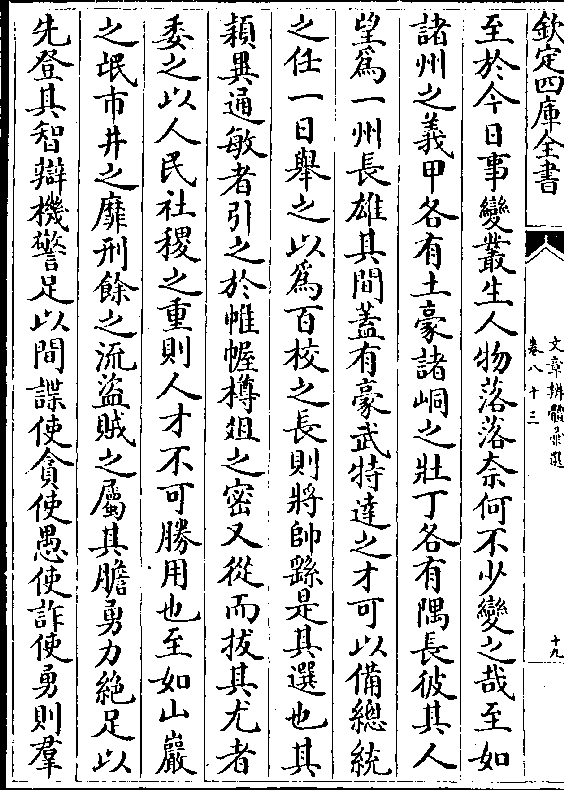 欽定四庫全書
文章辨體彙選
卷八十三
十九
至於今日事變叢生人物落落奈何不少變之哉至如
諸州之義甲各有土豪諸峒之壯丁各有隅長彼其人
望爲一州長雄其間蓋有豪武特達之才可以備總統
之任一日舉之以爲百校之長則將帥繇是其選也其
穎異通敏者引之於帷幄樽俎之密又從而拔其尤者
委之以人民社稷之重則人才不可勝用也至如山巖
之氓市井之靡刑餘之流盜賊之屬其膽勇力絶足以
先登其智辯機警足以間諜使貪使愚使詐使勇則羣